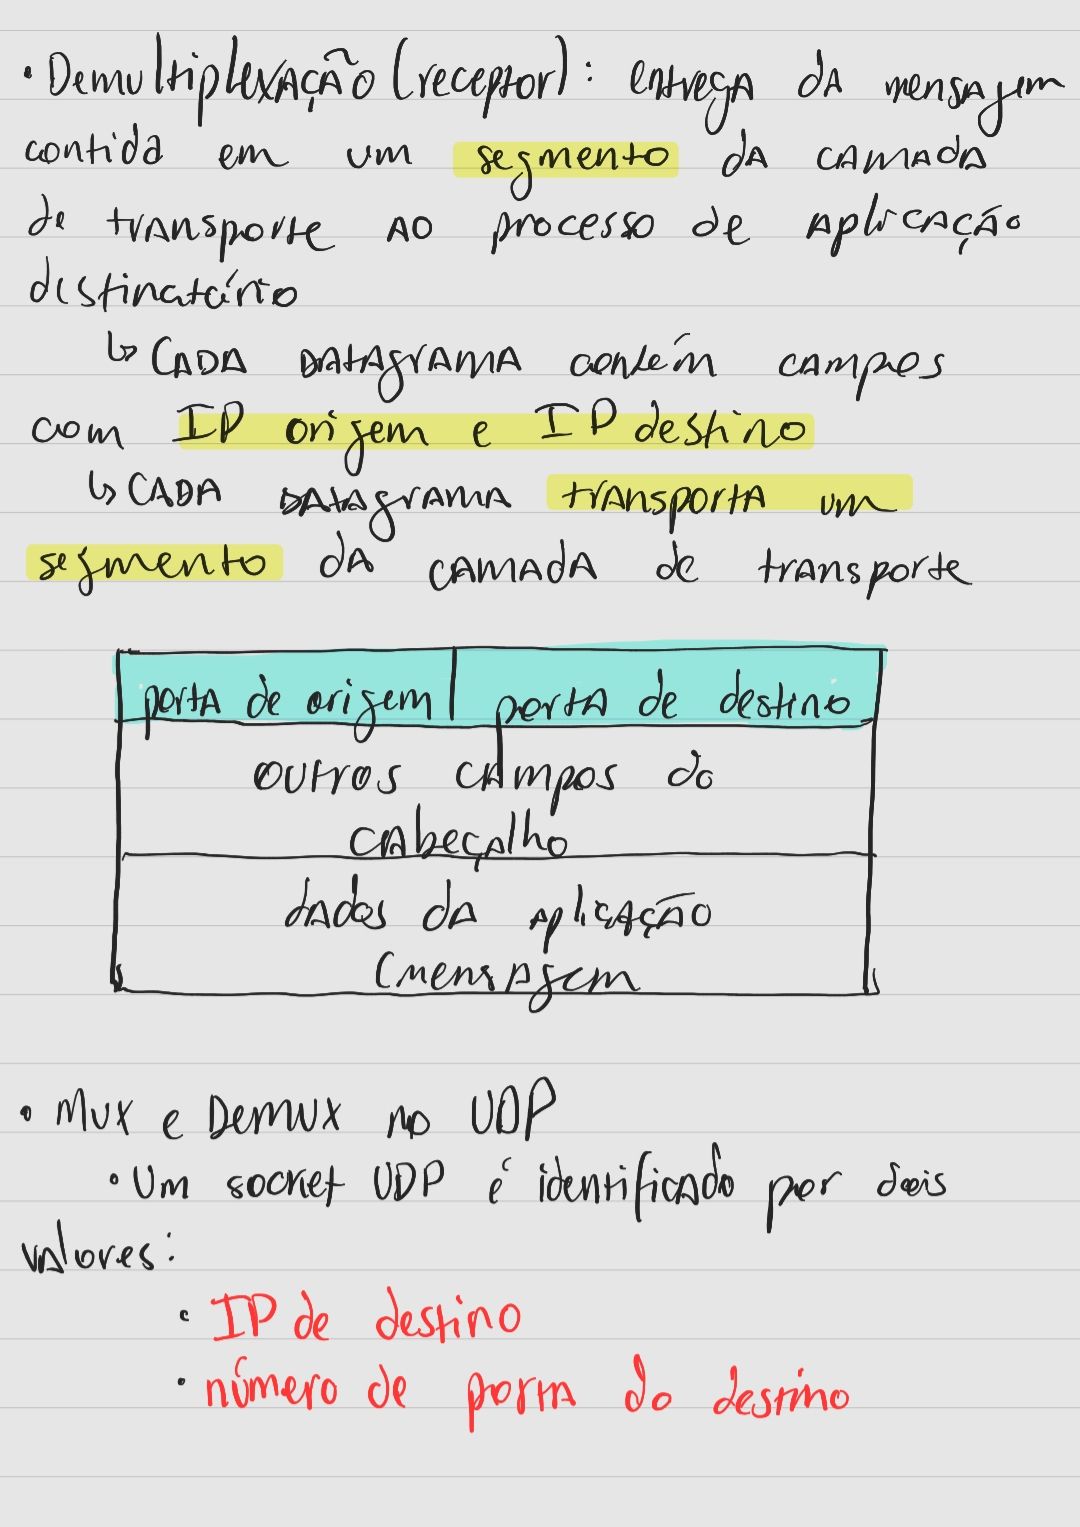 • Demultiplexação (receptor): entrega da mensagem
contida em um segmento da camada
de transporte ao processo de aplicação
destinatário
↳ Cada datagrama contém campos
com IP origem e IP destino
↳ Cada datagrama transporta um
segmento da camada de transporte
porta de origem | porta de destino
outros campos do
cabeçalho
dados da aplicação
(mensagem
• Mux e Demux no UDP
• Um socket UDP é identificado por dois
valores:
• IP de destino
• número de porta do destino